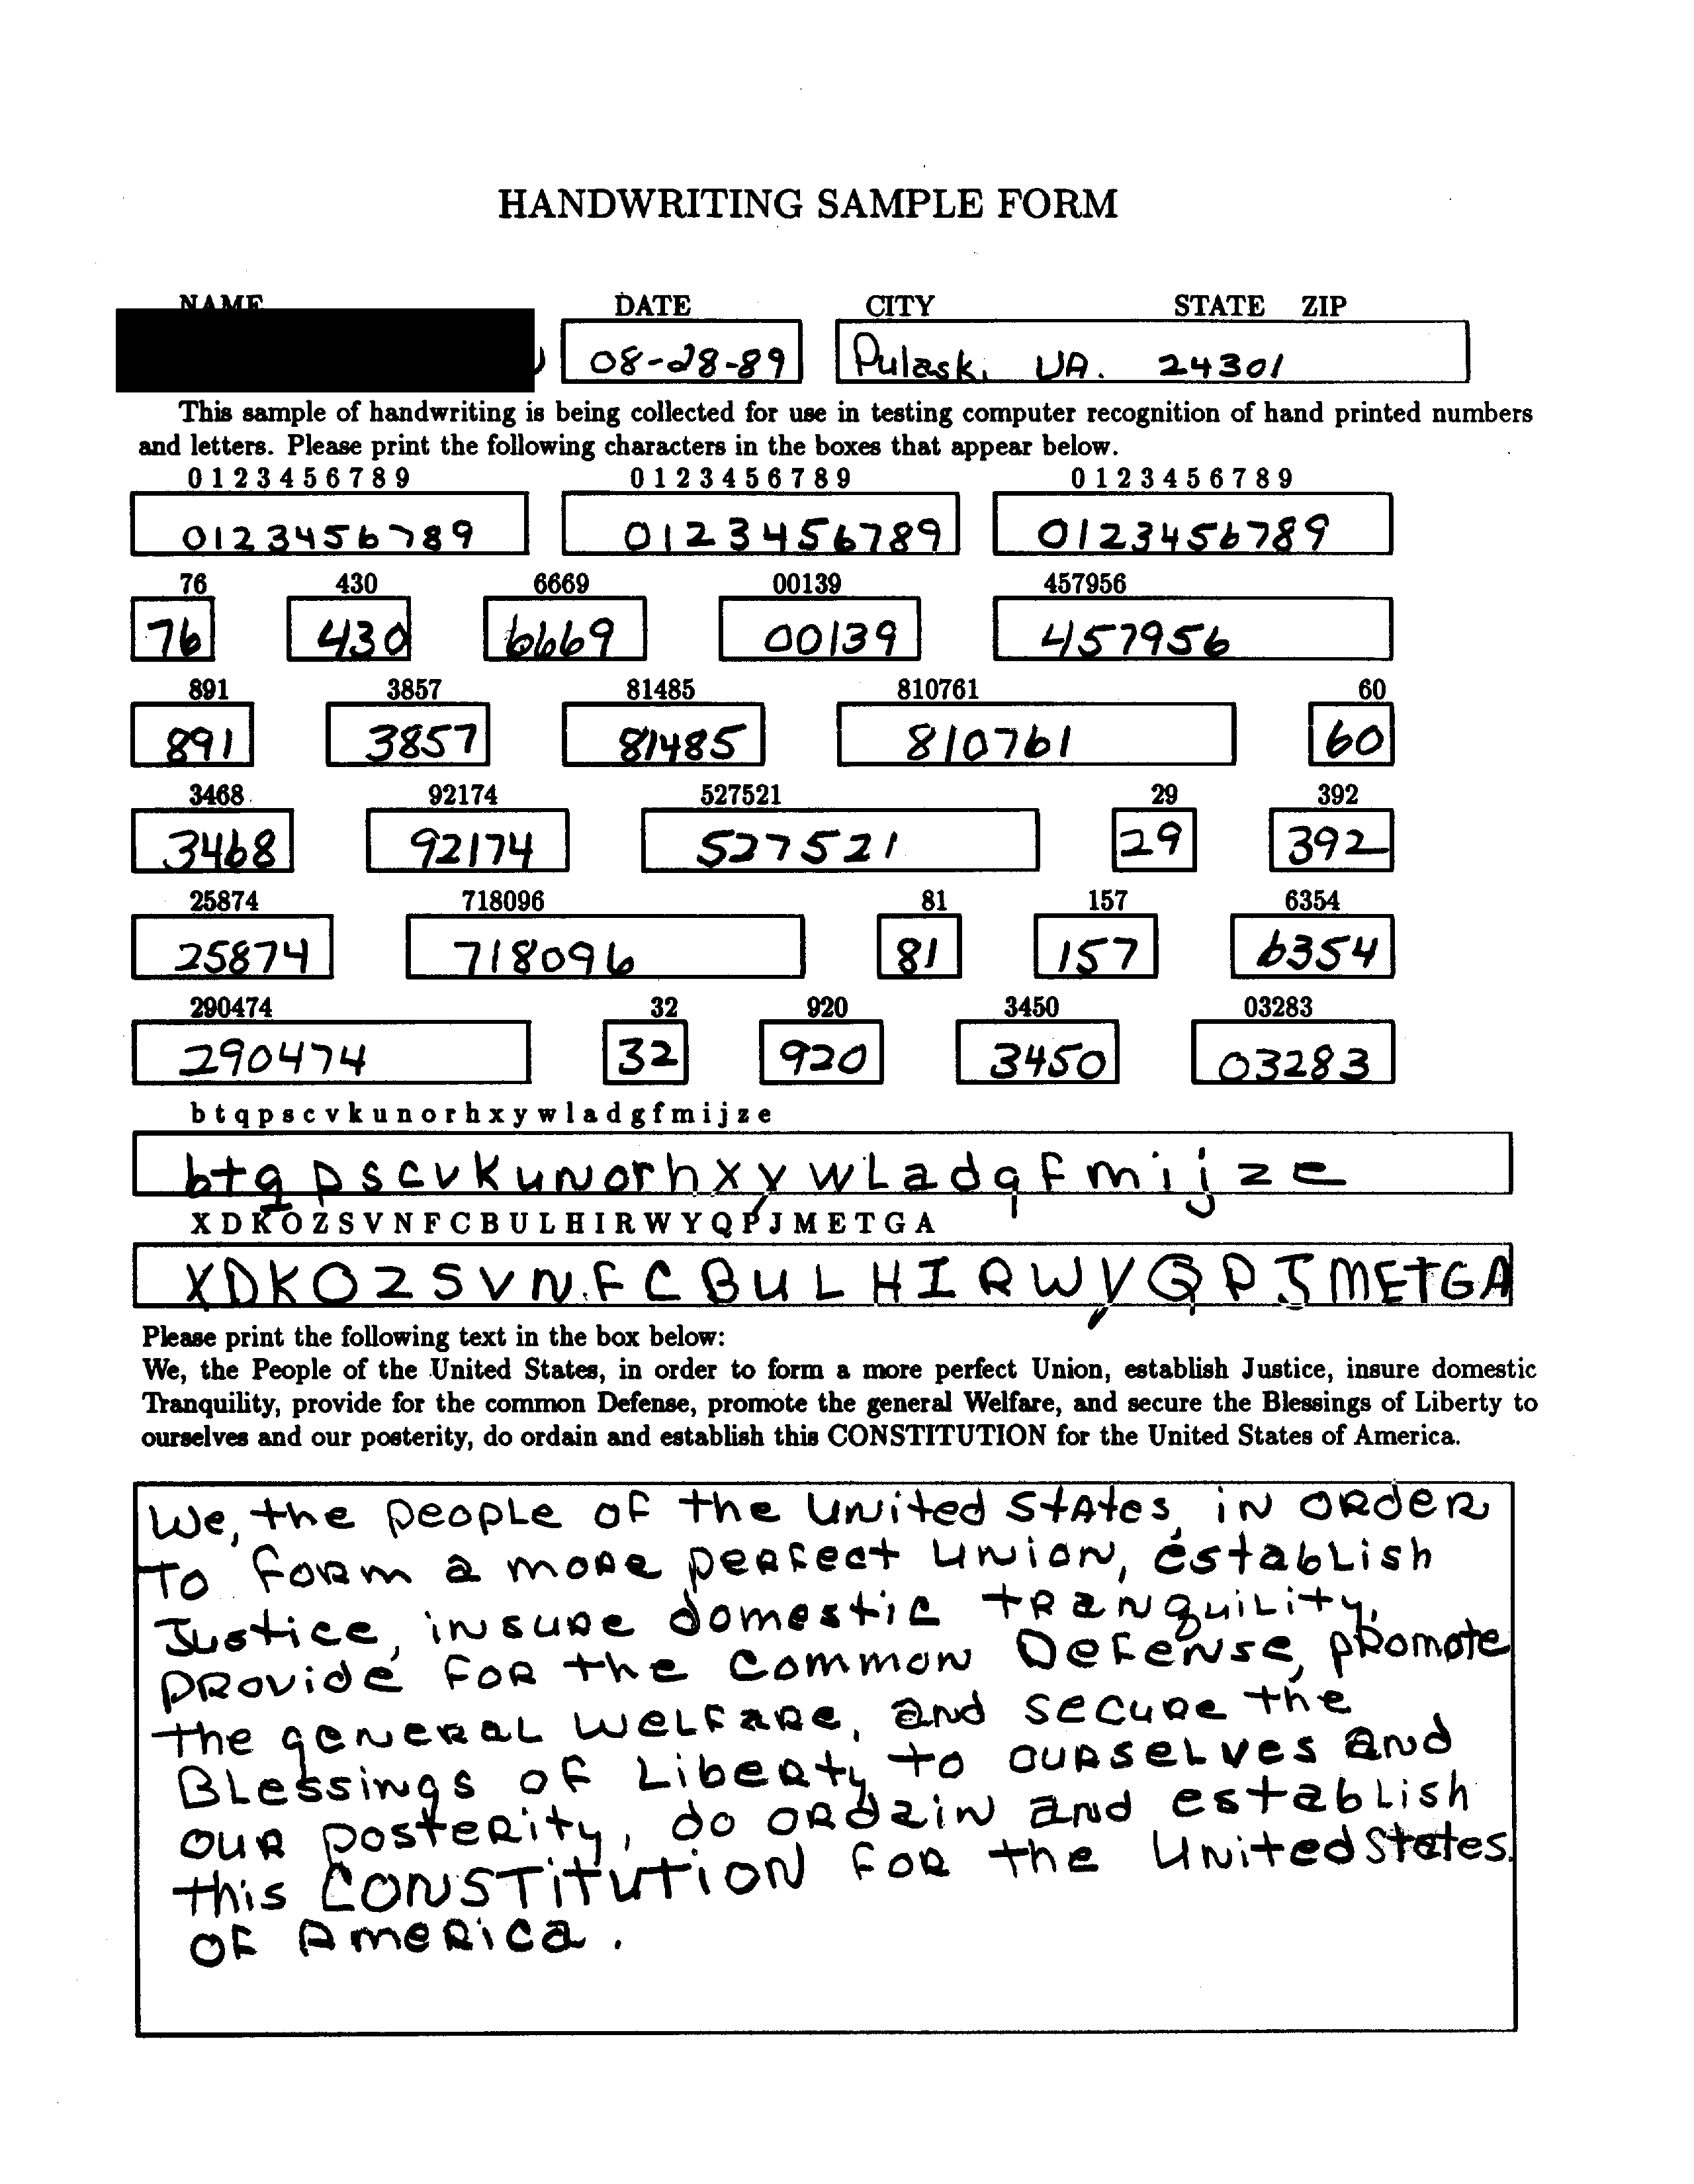 HANDWRITING SAMPLE FORM
NAME DATE CITY STATE ZIP
08-28-89 Pulaski VA. 24301
This sample of handwriting is being collected for use in testing computer recognition of hand printed numbers
and letters. Please print the following characters in the boxes that appear below.
0 1 2 3 4 5 6 7 8 9 0 1 2 3 4 5 6 7 8 9 0 1 2 3 4 5 6 7 8 9
0123456789 0123456789 0123456789
76 430 6669 00139 457956
76 430 6669 00139 457956
891 3857 81485 810761 60
891 3857 81485 810761 60
3468 92174 527521 29 392
3468 92174 527521 29 392
25874 718096 81 157 6354
25874 718096 81 157 6354
290474 32 920 3450 03283
290474 32 920 3450 03283
b t q p s c v k u n o r h x y w l a d g f m i j z e
b t q p s c v k u N o r h x y w L a d g f m i j z e
X D K O Z S V N F C B U L H I R W Y Q P J M E T G A
X D K O Z S V N F C B U L H I R W Y Q P J M E T G A
Please print the following text in the box below:
We, the People of the United States, in order to form a more perfect Union, establish Justice, insure domestic
Tranquility, provide for the common Defense, promote the general Welfare, and secure the Blessings of Liberty to
ourselves and our posterity, do ordain and establish this CONSTITUTION for the United States of America.
We, the peopLe oF the UNited StAtes, iN ORdeR
To FoRm a moRe peRFect UNioN, estabLish
Justice, iNsuRe domestic tRaNquiLity,
pRovide FoR the CommoN DeFeNse, pRomote
the geNeRaL WeLFaRe, aNd secuRe the
BLessiNgs oF LibeRty to ouRseLves aNd
ouR posteRity, do oRdaiN aNd estabLish
this CONSTitutioN FoR the UNited States.
oF AmeRica.